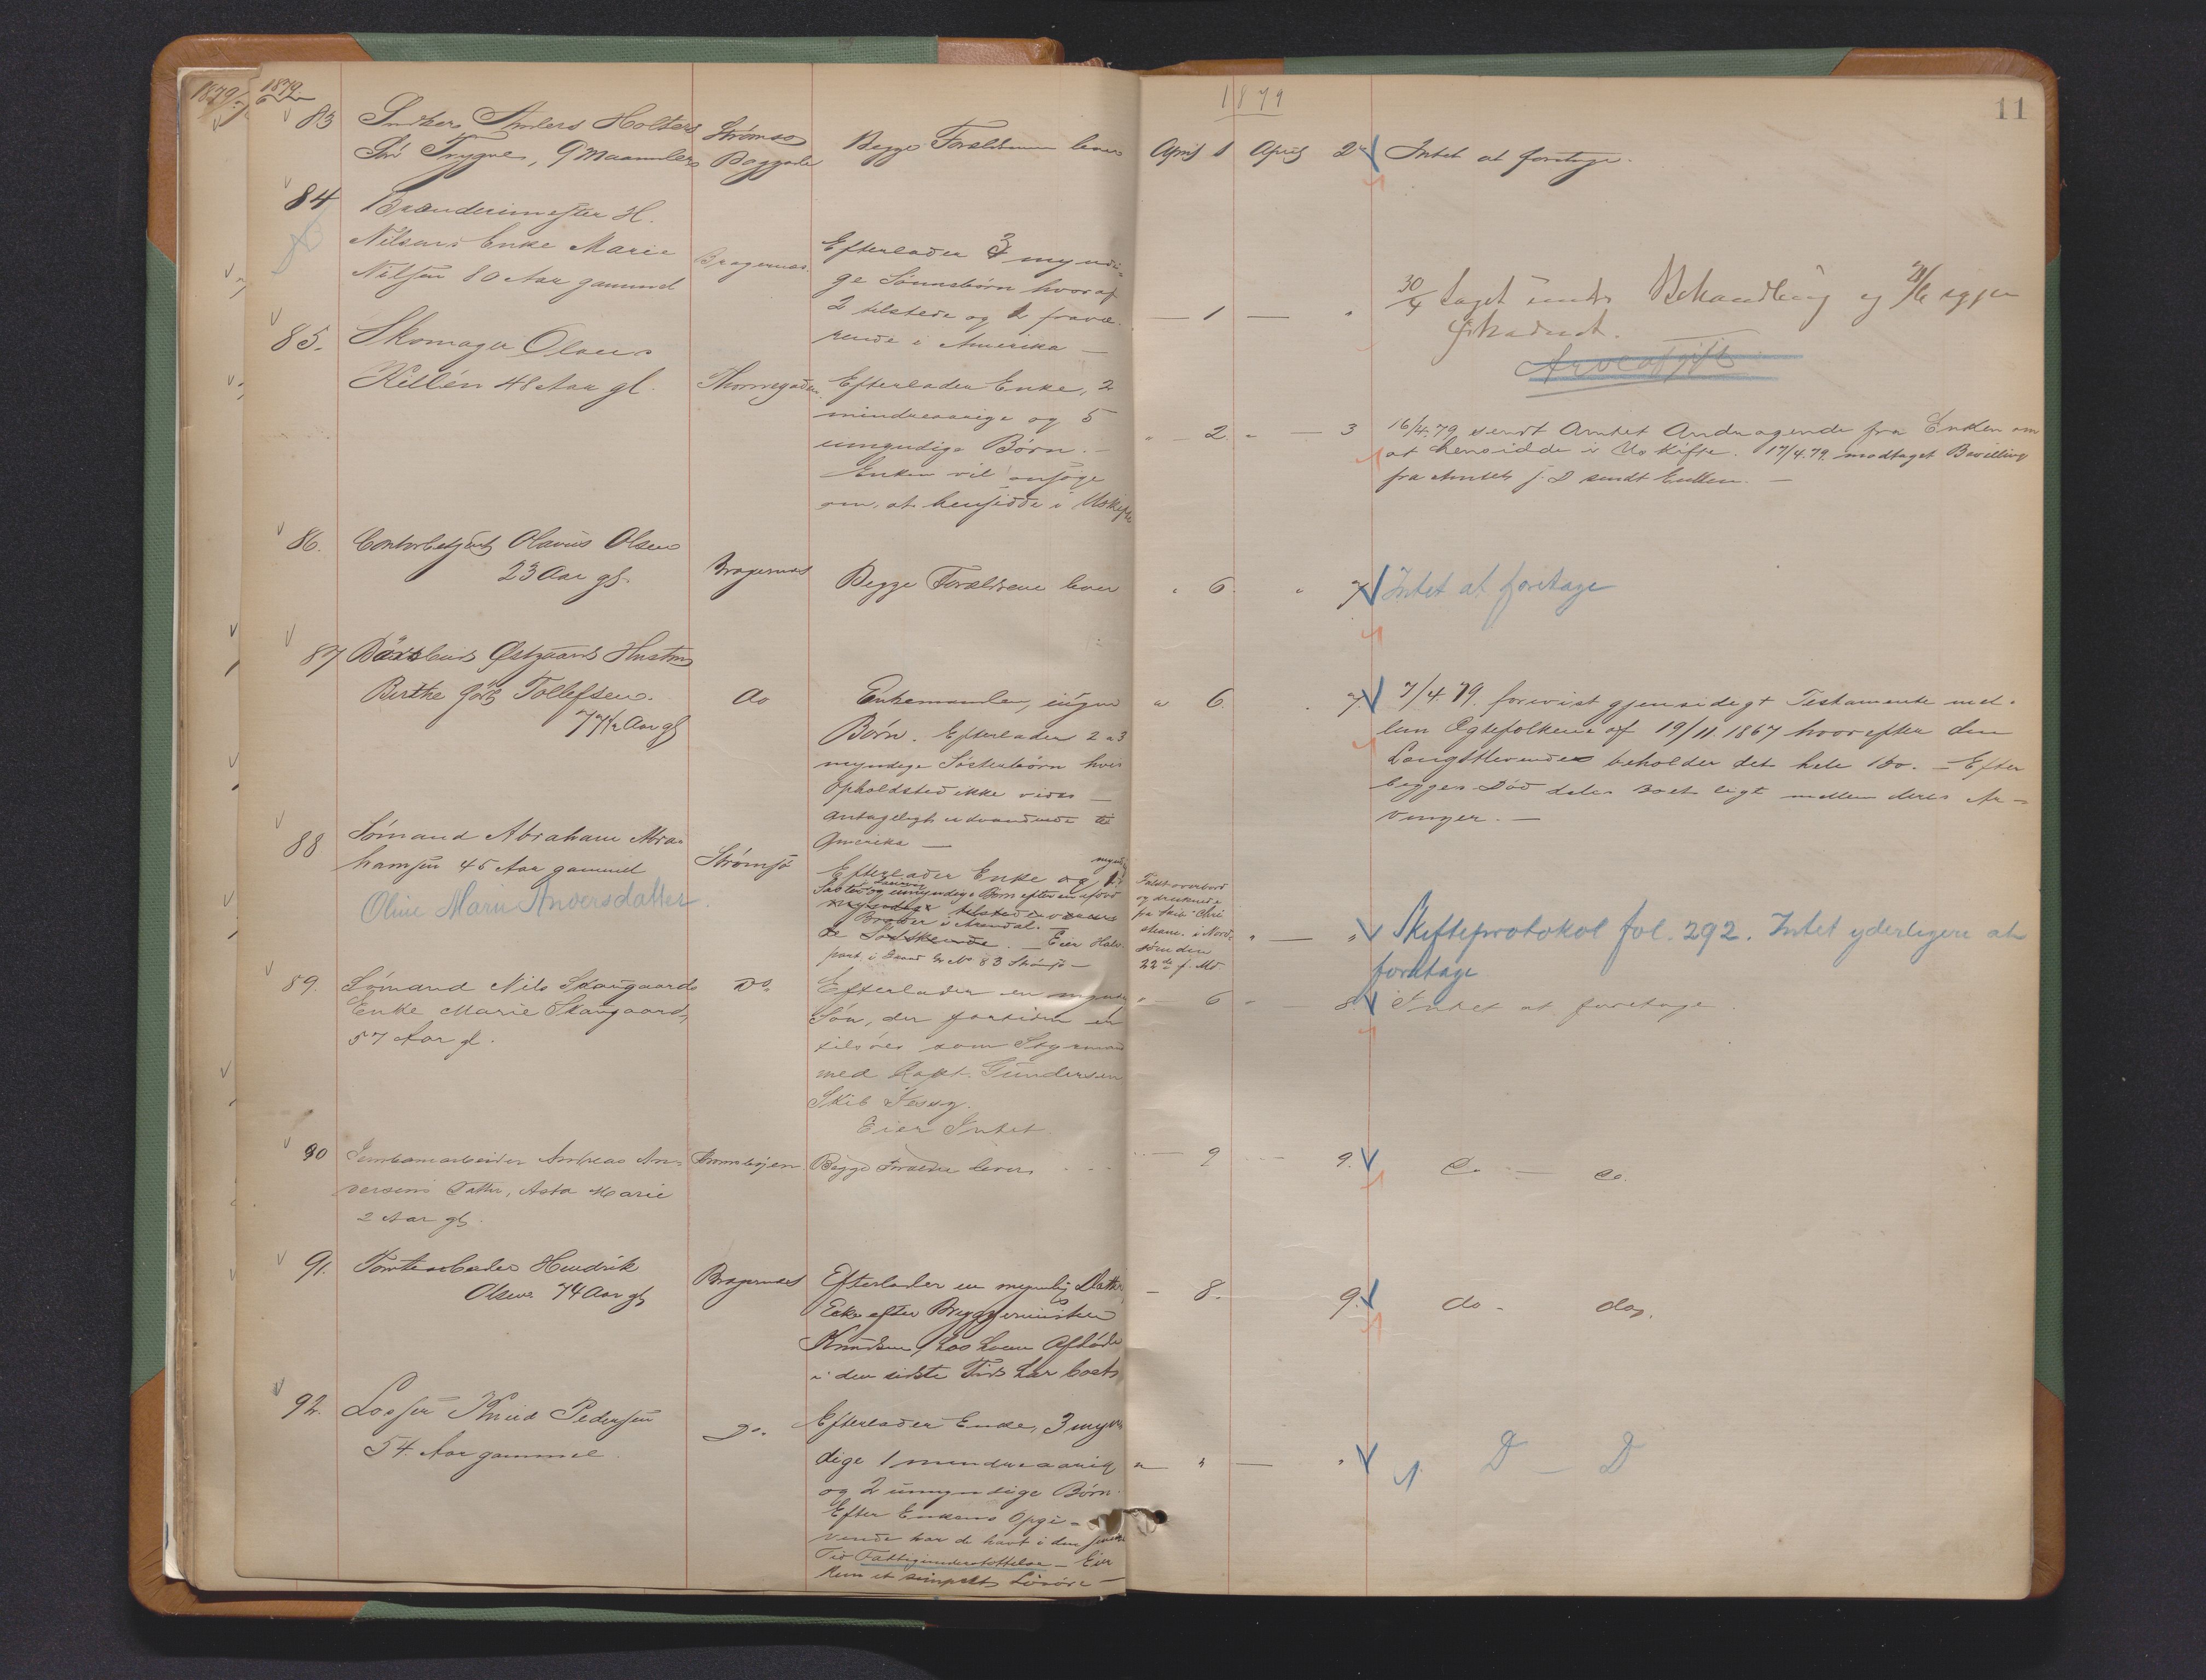 1879
1879
1879
11
83 Snedker Anders Holters Strømsø Begge Forældrene lever April 1 April 2 Intet at foretage.
Søn Trygve, 9 Maaneder Baggade
84 Brændevinsmester H.
Nilsens Enke Marie
Nilsen 80 Aar gammel
Bragernæs.
Efterlader 3 myndi-
ge Sønnebørn hvoraf
2 tilstede og 1 fravæ-
rende i Amerika —
— 1 — "
30/4 taget under Behandling og
Arveafgift
85. Skomager Olaus
Killén 48 Aar gl.
Thornegaden.
Efterlader Enke, 2
mindreaarige og 5
umyndige Børn. —
Enken vil ansøge
om, at hensidde i Uskifte
" — 2. " — 3
16/4.79 sendt Amtet Andragende fra Enken om
at hensidde i Uskifte. 17/4.79. modtaget Bevilling
fra Amtet s. D sendt Enken. —
86. Contorbetjent Olavus Olsen
23 Aar gl.
Bragernæs
Begge Forældrene lever
" 6. " 7
Intet at foretage
87 Østgaards Hustru
Berthe født Tollefsen.
77½ Aar gl
do
Enkemanden, ingen
Børn. Efterlader 2 a 3
myndige Søsterbørn hvis
Opholdsted ikke vides —
antageligt udvandrede til
Amerika —
" 6. " 7.
7/4.79. forevist gjensidigt Testamente mel-
lem Ægtefolkene af 19/11.1867 hvorefter den
Længstlevende beholder det hele Bo. — Efter
begges Død deles Boet ligt mellem deres Ar-
vinger. —
88 Sømand Abraham Abra-
hamsen 45 Aar gammel
Oline Marie Andersdatter.
Strømsø
Efterlader Enke og
umyndige Børn efter en afdød
Broder i Arendal. —
Eier Halv-
part i Gaard Gr No 83 Strømsø —
Faldt overbord
og druknede
fra Skib Chri
stiane i Nord-
søen den
22de f. Md.
" — "
Skifteprotokol fol. 292. Intet yderligere at
foretage
89. Sømand Nils Skaugaards
Enke Marie Skaugaard,
57 Aar gl.
Do.
Efterlader en myndig
Søn, der fortiden er
tilsøes som Styrmand
med Kapt. Gundersen
Skib
Eier Intet.
" — 6 " — 8
Intet at foretage.
90 Jernbanearbeider Andreas An-
dersens Datter, Asta Marie
2 Aar gl.
Begge Forældre lever
— 9 — 9.
do. — do.
91. Tomtearbeider Hendrik
Olsen 74 Aar gl
Bragernæs
Efterlader en myndig Datter,
Enke efter Bryggerimester
Knudsen, hos hvem Afdøde
i den sidste Tid har boet
— 8. 9.
do — do.
92. Losser Knud Pedersen
54 Aar gammel
Do.
Efterlader Enke, 3 myn-
dige 1 mindreaarig
og 2 umyndige Børn.
Efter Enkens Opgi-
vende har de havt i den senere
Tid Fattigunderstøttelse — Eier
kun et simpelt Løsøre —
" " — "
D — D